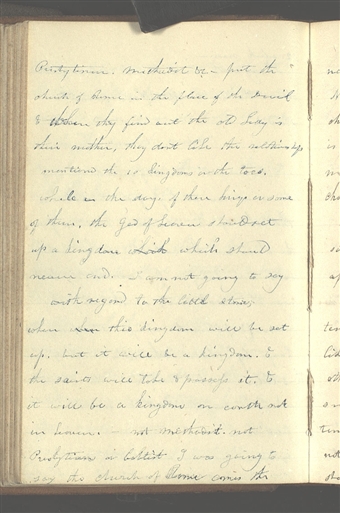 Presbyterian. Methodist &c - put the
church of Rome in the place of the Devil
& when they find out the old Lady is
their mother, they dont like the relationship
mentiond the 10 kingdoms or the toes.
while in the days of these kings or some
of them, the God of heaven should set
up a kingdom which should
never end. I am not going to say
with regard to the little stone,
when this kingdom will be set
up. but it will be a kingdom. &
the saints will take & possess it. &
it will be a kingdom on earth not
in heaven. - not methodist. not
Presbyterian or Babtist I was going to
say the church of Rome comes the